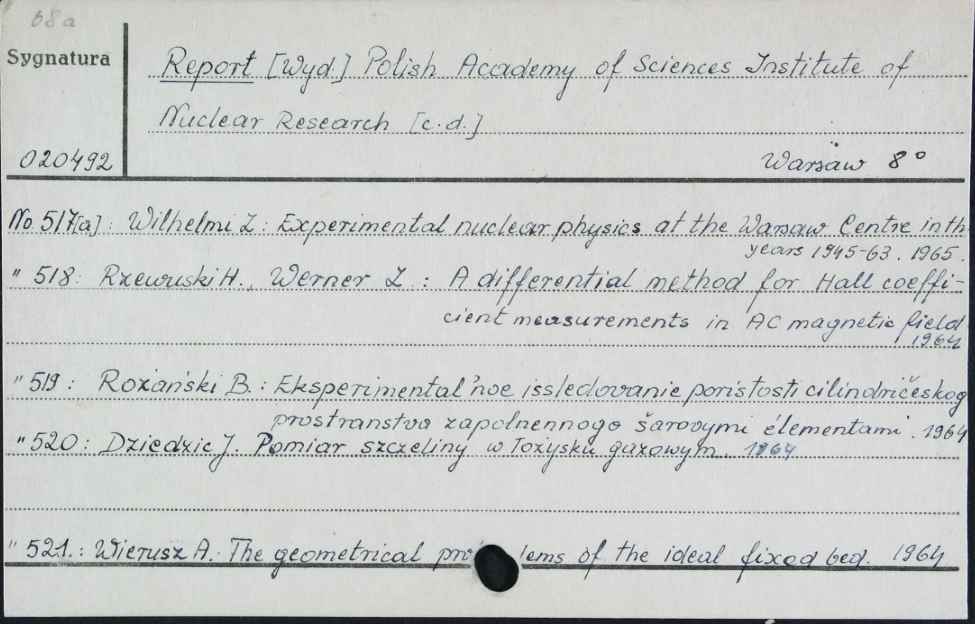 68a
Sygnatura
Report [Wyd.] Polish Academy of Sciences Institute of
Nuclear Research [c.d.]
020492
Warsaw 8°
No 517[a]: Wilhelmi Z: Experimental nuclear physics at the Warsaw Centre in th
years 1945-63. 1965.
" 518: Rzewuski H., Werner Z.: A differential method for Hall coeffi-
cient measurements in AC magnetic field
1964
" 519: Rożański B.: Eksperimental'noe issledovanie poristosti cilindričeskog
prostranstva zapolnennogo šarovymi élementami. 1964
" 520: Dziedzic J. Pomiar szczeliny w łożysku gazowym. 1964
" 521.: Wierusz A. The geometrical pro lems of the ideal fixed bed. 1964